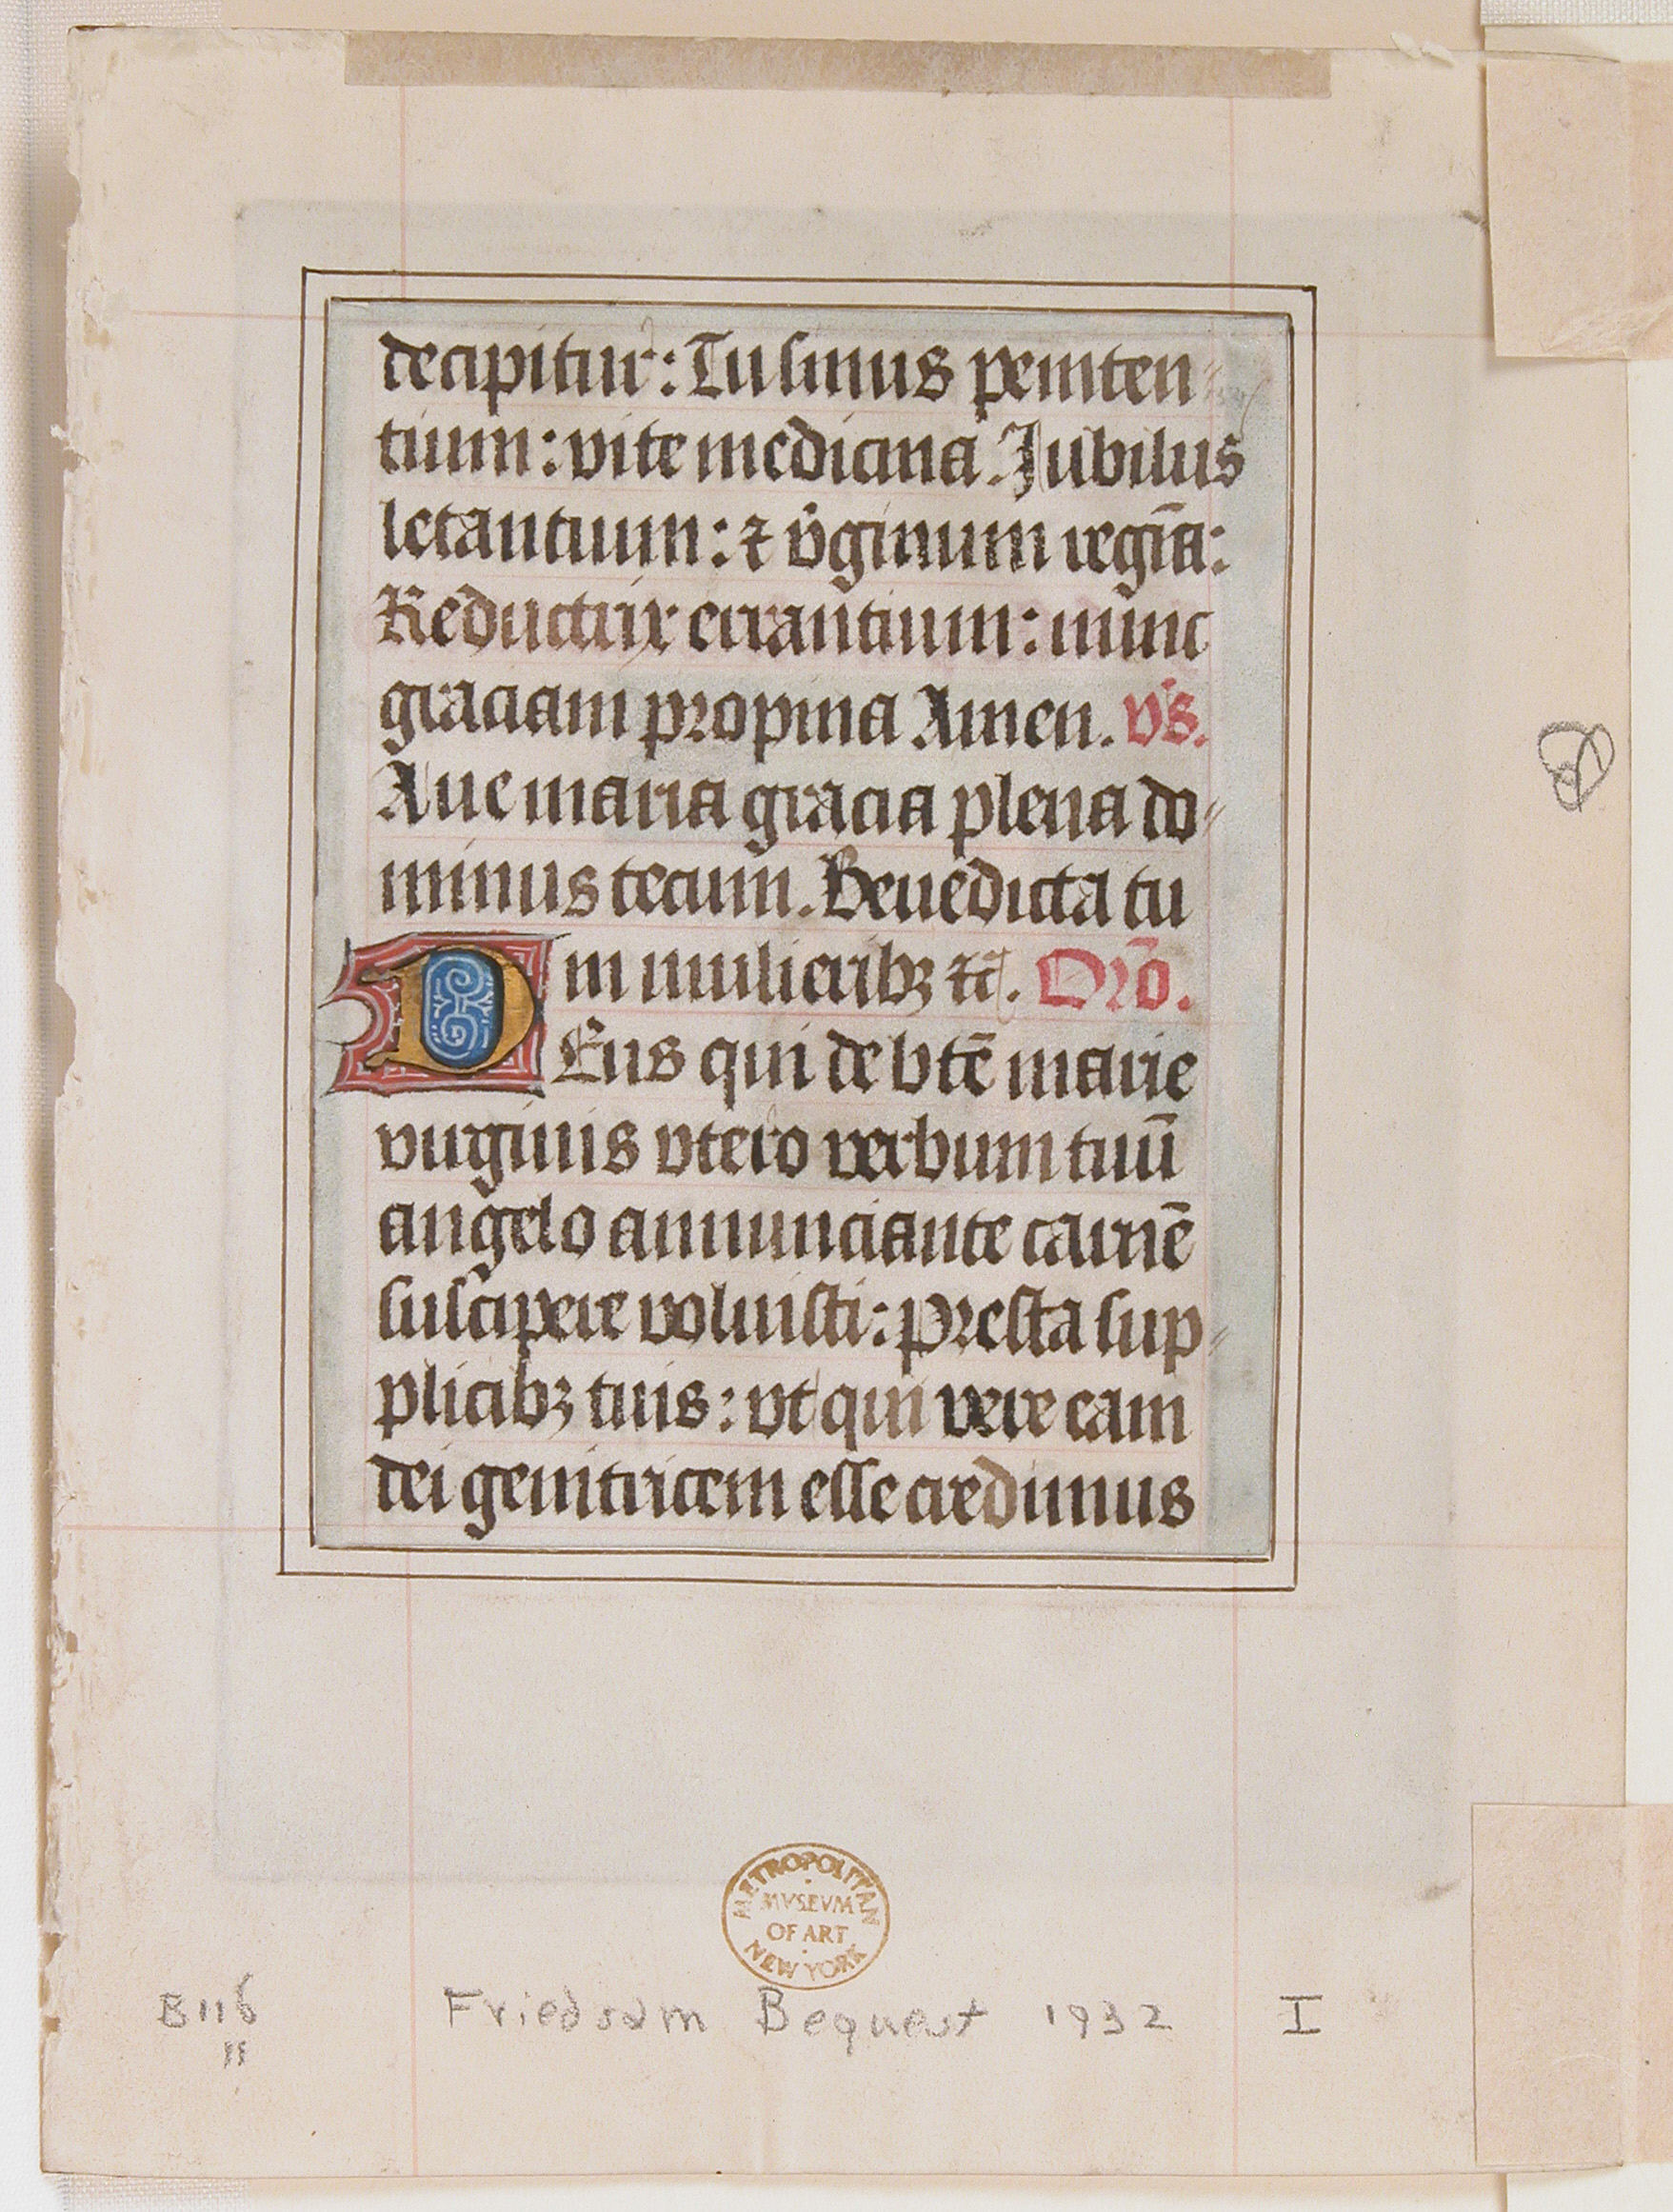 decipitur: Tu sinus peniten⸗
tium: vite medicina. Jubilus
letantium: ⁊ v̄ginum regīa:
Reductrix errantium: nunc
graciam propina Amen. v̄s.
Aue maria gracia plena do⸗
minus tecum. Benedicta tu
in mulieribꝫ ⁊c̄. Orō.
DEus qui de btē marie
virginis vtero verbum tuū
angelo annunciante carnē
suscipere voluisti: Presta sup⸗
plicibꝫ tuis: vt qui vere eam
dei genitricem esse credimus
METROPOLITAN
MVSEVM
OF ART
NEW YORK
B116
Friedsam Bequest 1932 I